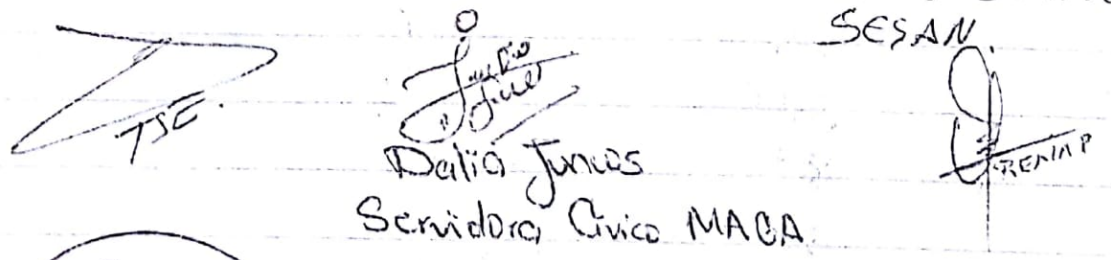 SESAN.
TSE.
Dalia Juncos
Servidora Cívico MAGA
RENAP